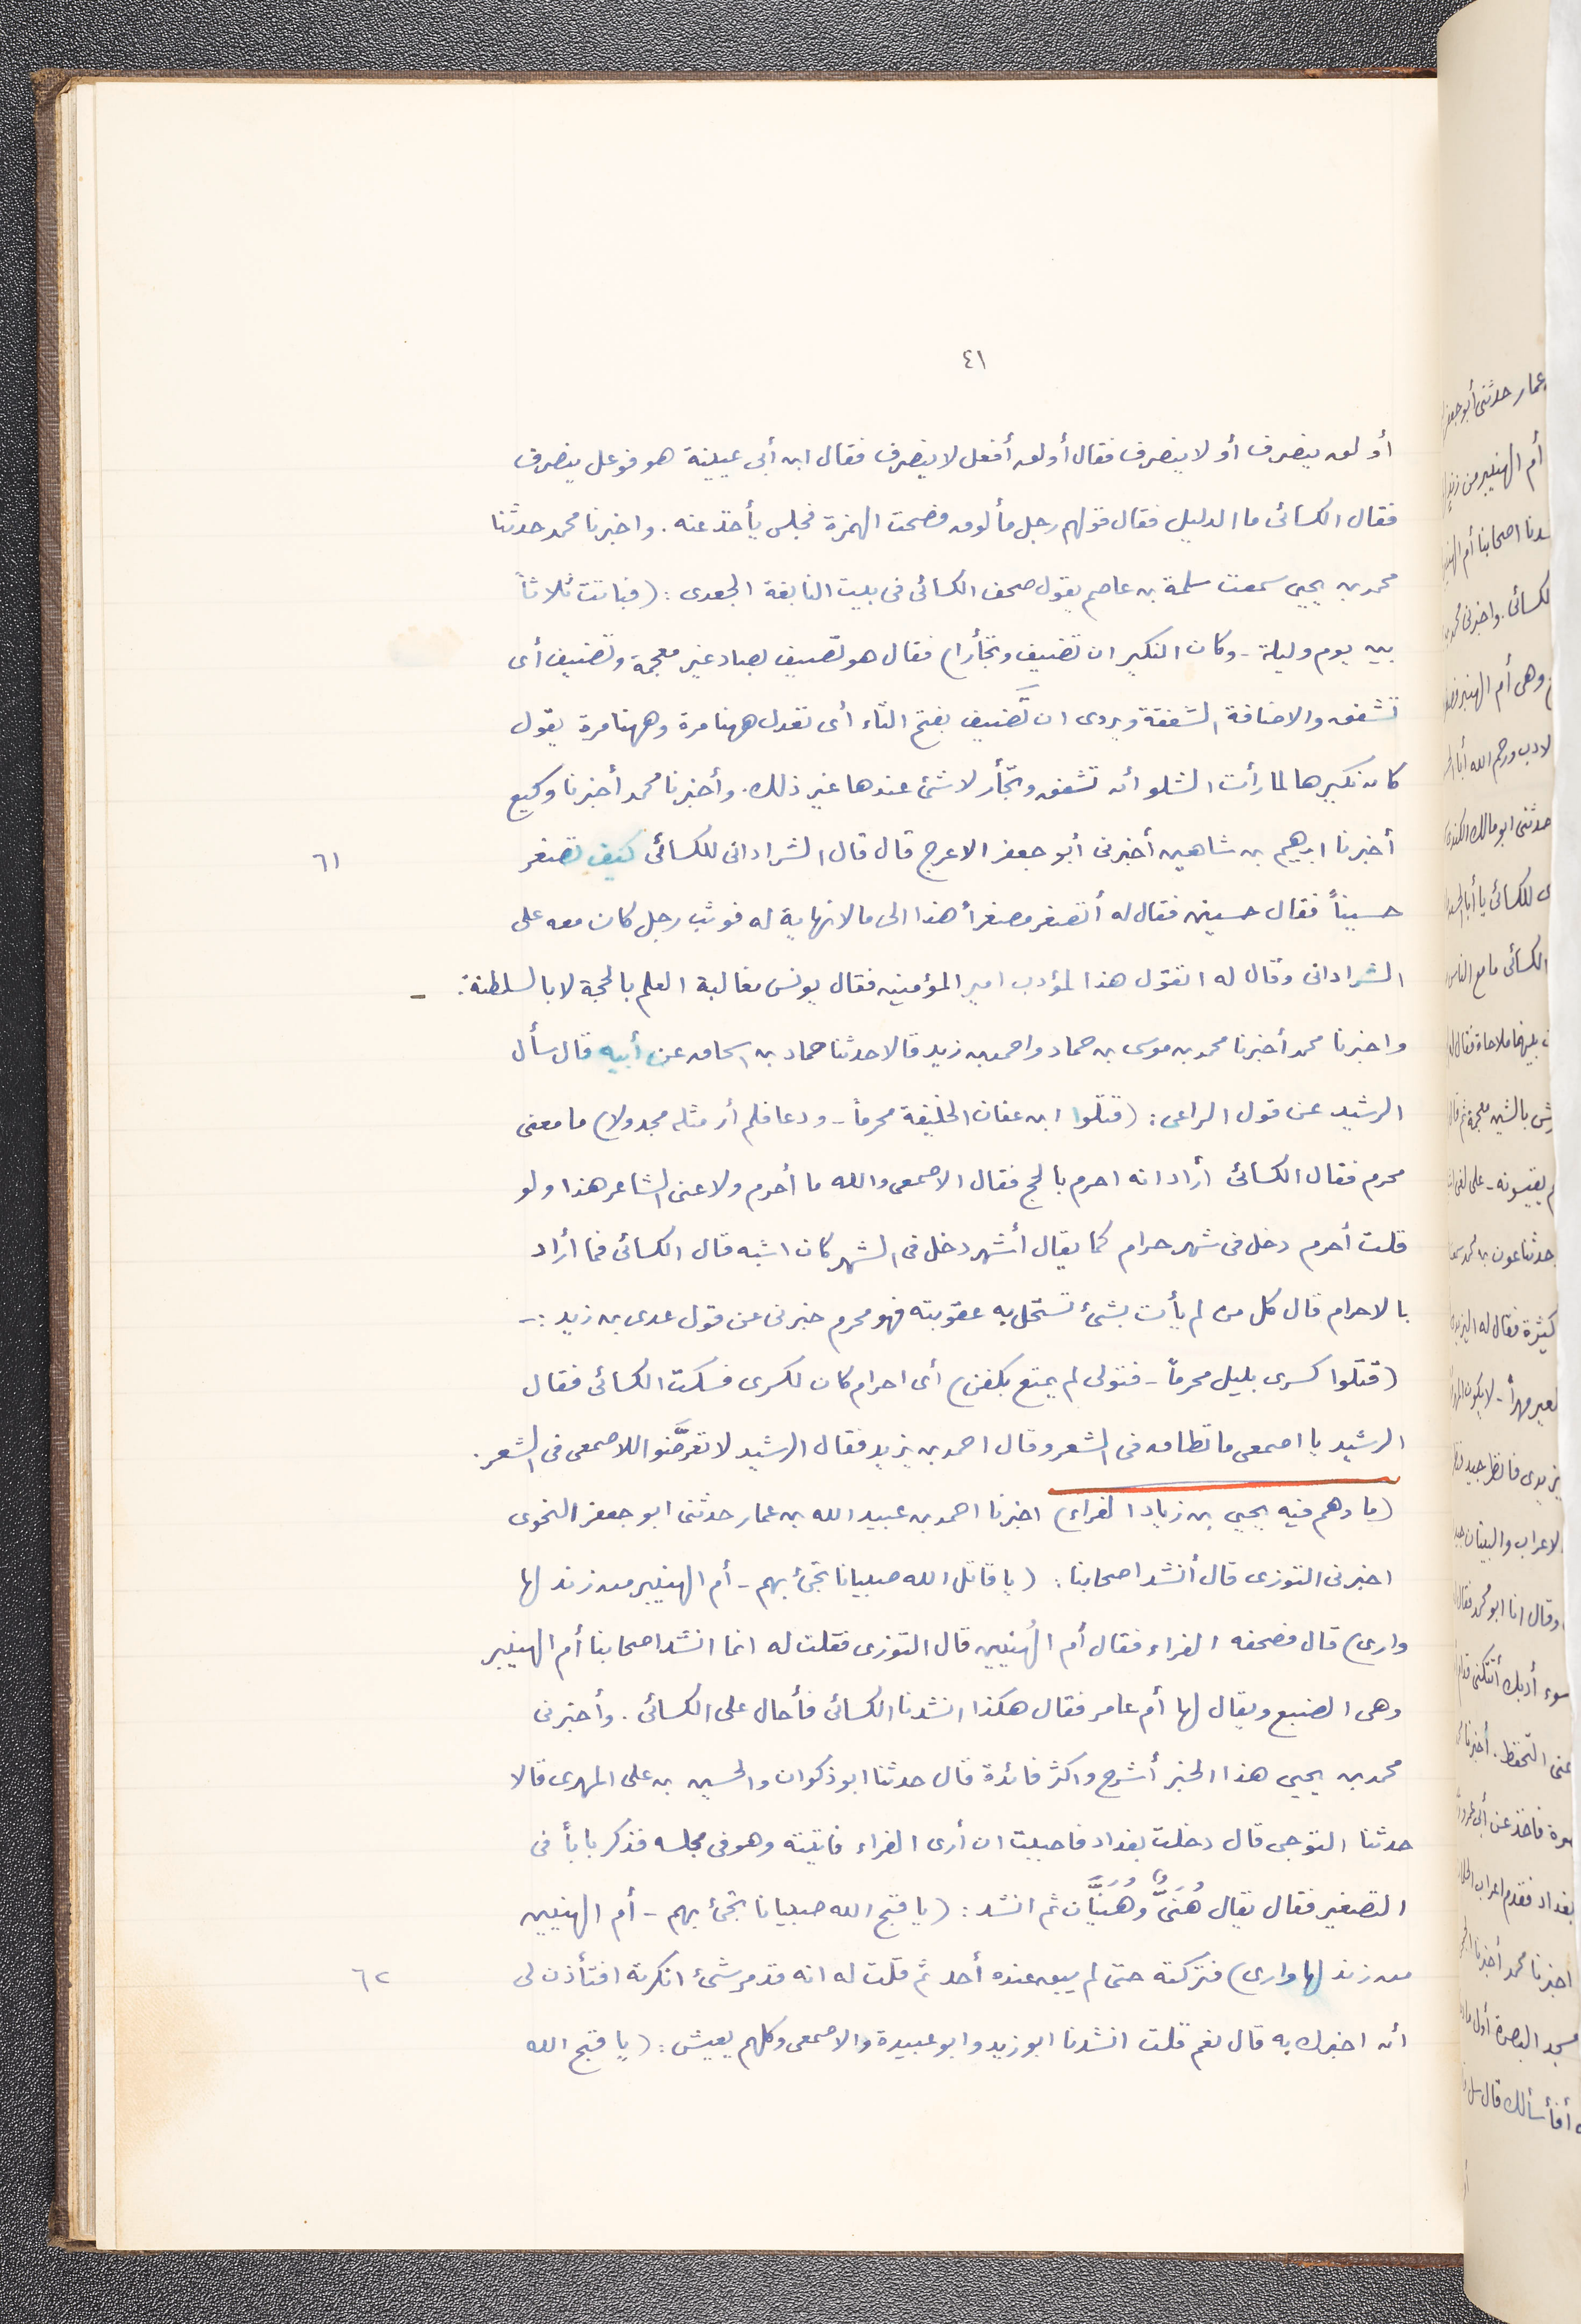 ٤١
أولق ينصرف أو لا ينصرف فقال أولق أفعل لا ينصرف فقال ابن أبى عيينة هو فوعل ينصرف
فقال الكسائى ما الدليل فقال قولهم رجل مألوق فضحت الهمزة فجلس يأخذ عنه. واخبرنا محمد حدثنا
محمد بن يحيى سمعت سلمة بن عاصم يقول صحف الكسائى فى بيت النابغة الجعدى: (فباتت ثلاثاً
بين يوم وليلة - وكان النكير ان تضيف وتجأرا) فقال هو تصيف بصاد غير معجمة وتضيف أى
تشفق والاضافة الشفقة ويروى ان تَضيف بفتح التاء أى تعدل ههنا مرة وههنا مرة يقول
كان نكيرها لما رأت الشلو أن تشفق وتجأر لا شئ عندها غير ذلك. وأخبرنا محمد أخبرنا وكيع
أخبرنا ابرهيم بن شاهين أخبرنى أبو جعفر الاعرج قال قال الشرادانى للكسائى كيف تصغر
٦١
حسيناً فقال حسين فقال له أتصغر مصغراً هذا الى ما لا نهاية له فوثب رجل كان معه على
الشرادانى وقال له اتقول هذا لمؤدب امير المؤمنين فقال يونس مغالبة العلم بالحجة لا بالسلطنة. -
واخبرنا محمد أخبرنا محمد بن موسى بن حماد واحمد بن زيد قالا حدثنا حماد بن اسحاق عن أبيه قال سأل
الرشيد عن قول الراعى: (قتلوا ابن عفان الخليفة محرماً - ودعا فلم أر مثله مجدولا) ما معنى
محرم فقال الكسائى أراد انه احرم بالحج فقال الاصمعى والله ما أحرم ولا عنى الشاعر هذا ولو
قلت أحرم دخل فى شهر حرام كما يقال أشهر دخل فى الشهر كان اشبه قال الكسائى فما أراد
بالاحرام قال كل من لم يأت بشئ تستحل به عقوبته فهو محرم خبرنى عن قول عدى بن زيد :-
(قتلوا كسرى بليل محرماً - فتولى لم يمتع بكفن) أى احرام كان لكسرى فسكت الكسائى فقال
الرشيد يا اصمعى ما تطاق فى الشعر وقال احمد بن يزيد فقال الرشيد لا تعرضَّوا للاصمعى فى الشعر.
(ما وهم فيه يحيى بن زياد الفراء) اخبرنا احمد بن عبيد الله بن عمار حدثنى ابو جعفر النحوى
اخبرنى التوزى قال أنشد اصحابنا: (يا قاتل الله صبيانا تجئ بهم - أم الهنيبر من زند لها
وارى) قال فصحفه الفراء فقال أم الهُنيين قال التوزى فقلت له انما انشد اصحابنا أم الهنيبر
وهى الضبع ويقال لها أم عامر فقال هكذا انشدنا الكسائى فأحال على الكسائى. وأخبرنى
محمد بن يحيى هذا الخبر أشرح واكثر فائدة قال حدثنا ابو ذكوان والحسين بن على المهرى قالا
حدثنا التوجى قال دخلت بغداد فاحببت ان أرى الفراء فاتيته وهو فى مجلسه فذكر باباً فى
التصغير فقال يقال هُنَىٌّ وهُنَيَّان ثم انشد: (يا قبح الله صبيانا تجئ بهم - أم الهنيين
من زند لها وارى) فتركته حتى لم يبق عنده أحد ثم قلت له انه قد مر شئ انكرته افتأذن لى
٦٢
أن اخبرك به قال نعم قلت انشدنا ابو زيد وابو عبيدة والاصمعى وكلهم يعيش: (يا قبح الله